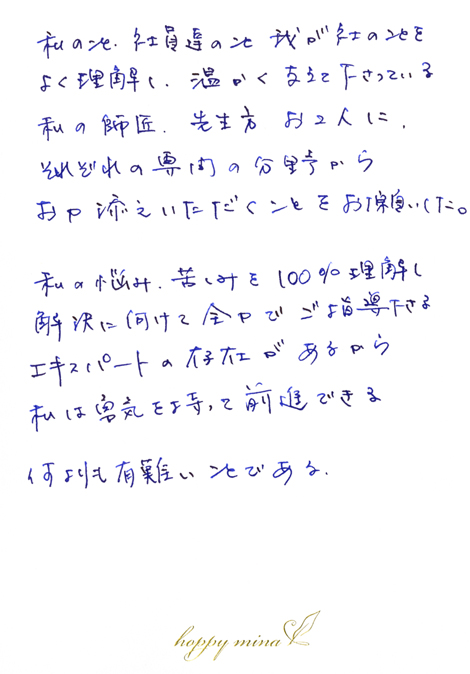 私のこと、社員達のこと 我が社のことを
よく理解し、温かく支えて下さっている
私の師匠、先生方 お2人に、
それぞれの専門の分野から
お口添えいただくことをお願いした。
私の悩み、苦しみを100%理解し
解決に向けて全力でご指導下さる
エキスパートの存在があるから
私は勇気を持って前進できる
何よりも有難いことである。
happy mina